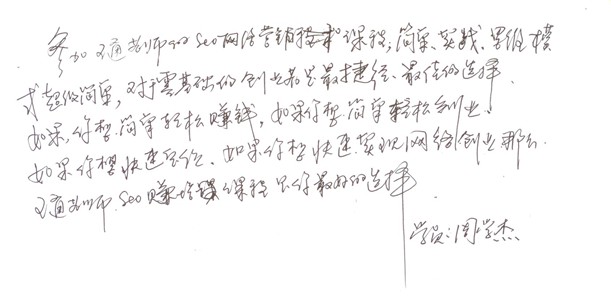 参加王通老师的seo网络营销技术课程，简单、实战、思维模
式超级简单，对于零基础的创业者是最捷径、最佳的选择、
如果，你想简单轻松赚钱，如果你想简单轻松创业、
如果你想快速定位、如果你想快速实现网络创业那么、
王通老师、seo赚钱课程是你最好的选择
学员：周学杰